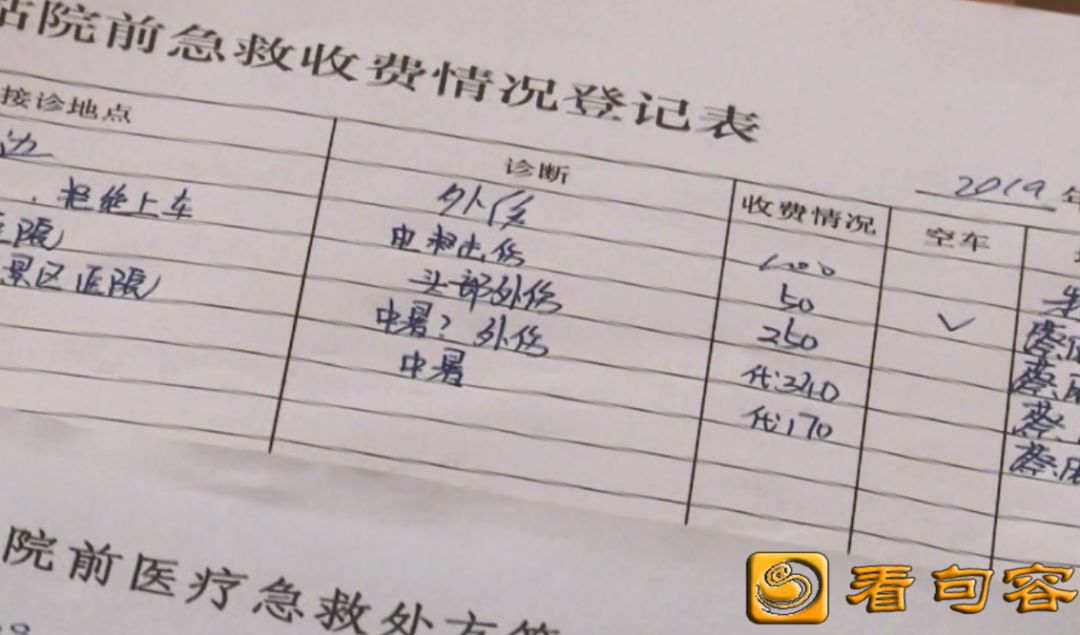 站院前急救收费情况登记表
2019 年
接诊地点 诊断 收费情况 空车
边 外伤
拒绝上车 50 ✓
医院 头部外伤 250
景区医院 中暑？外伤 代340
中暑 代170
院前医疗急救处方笺
看句容